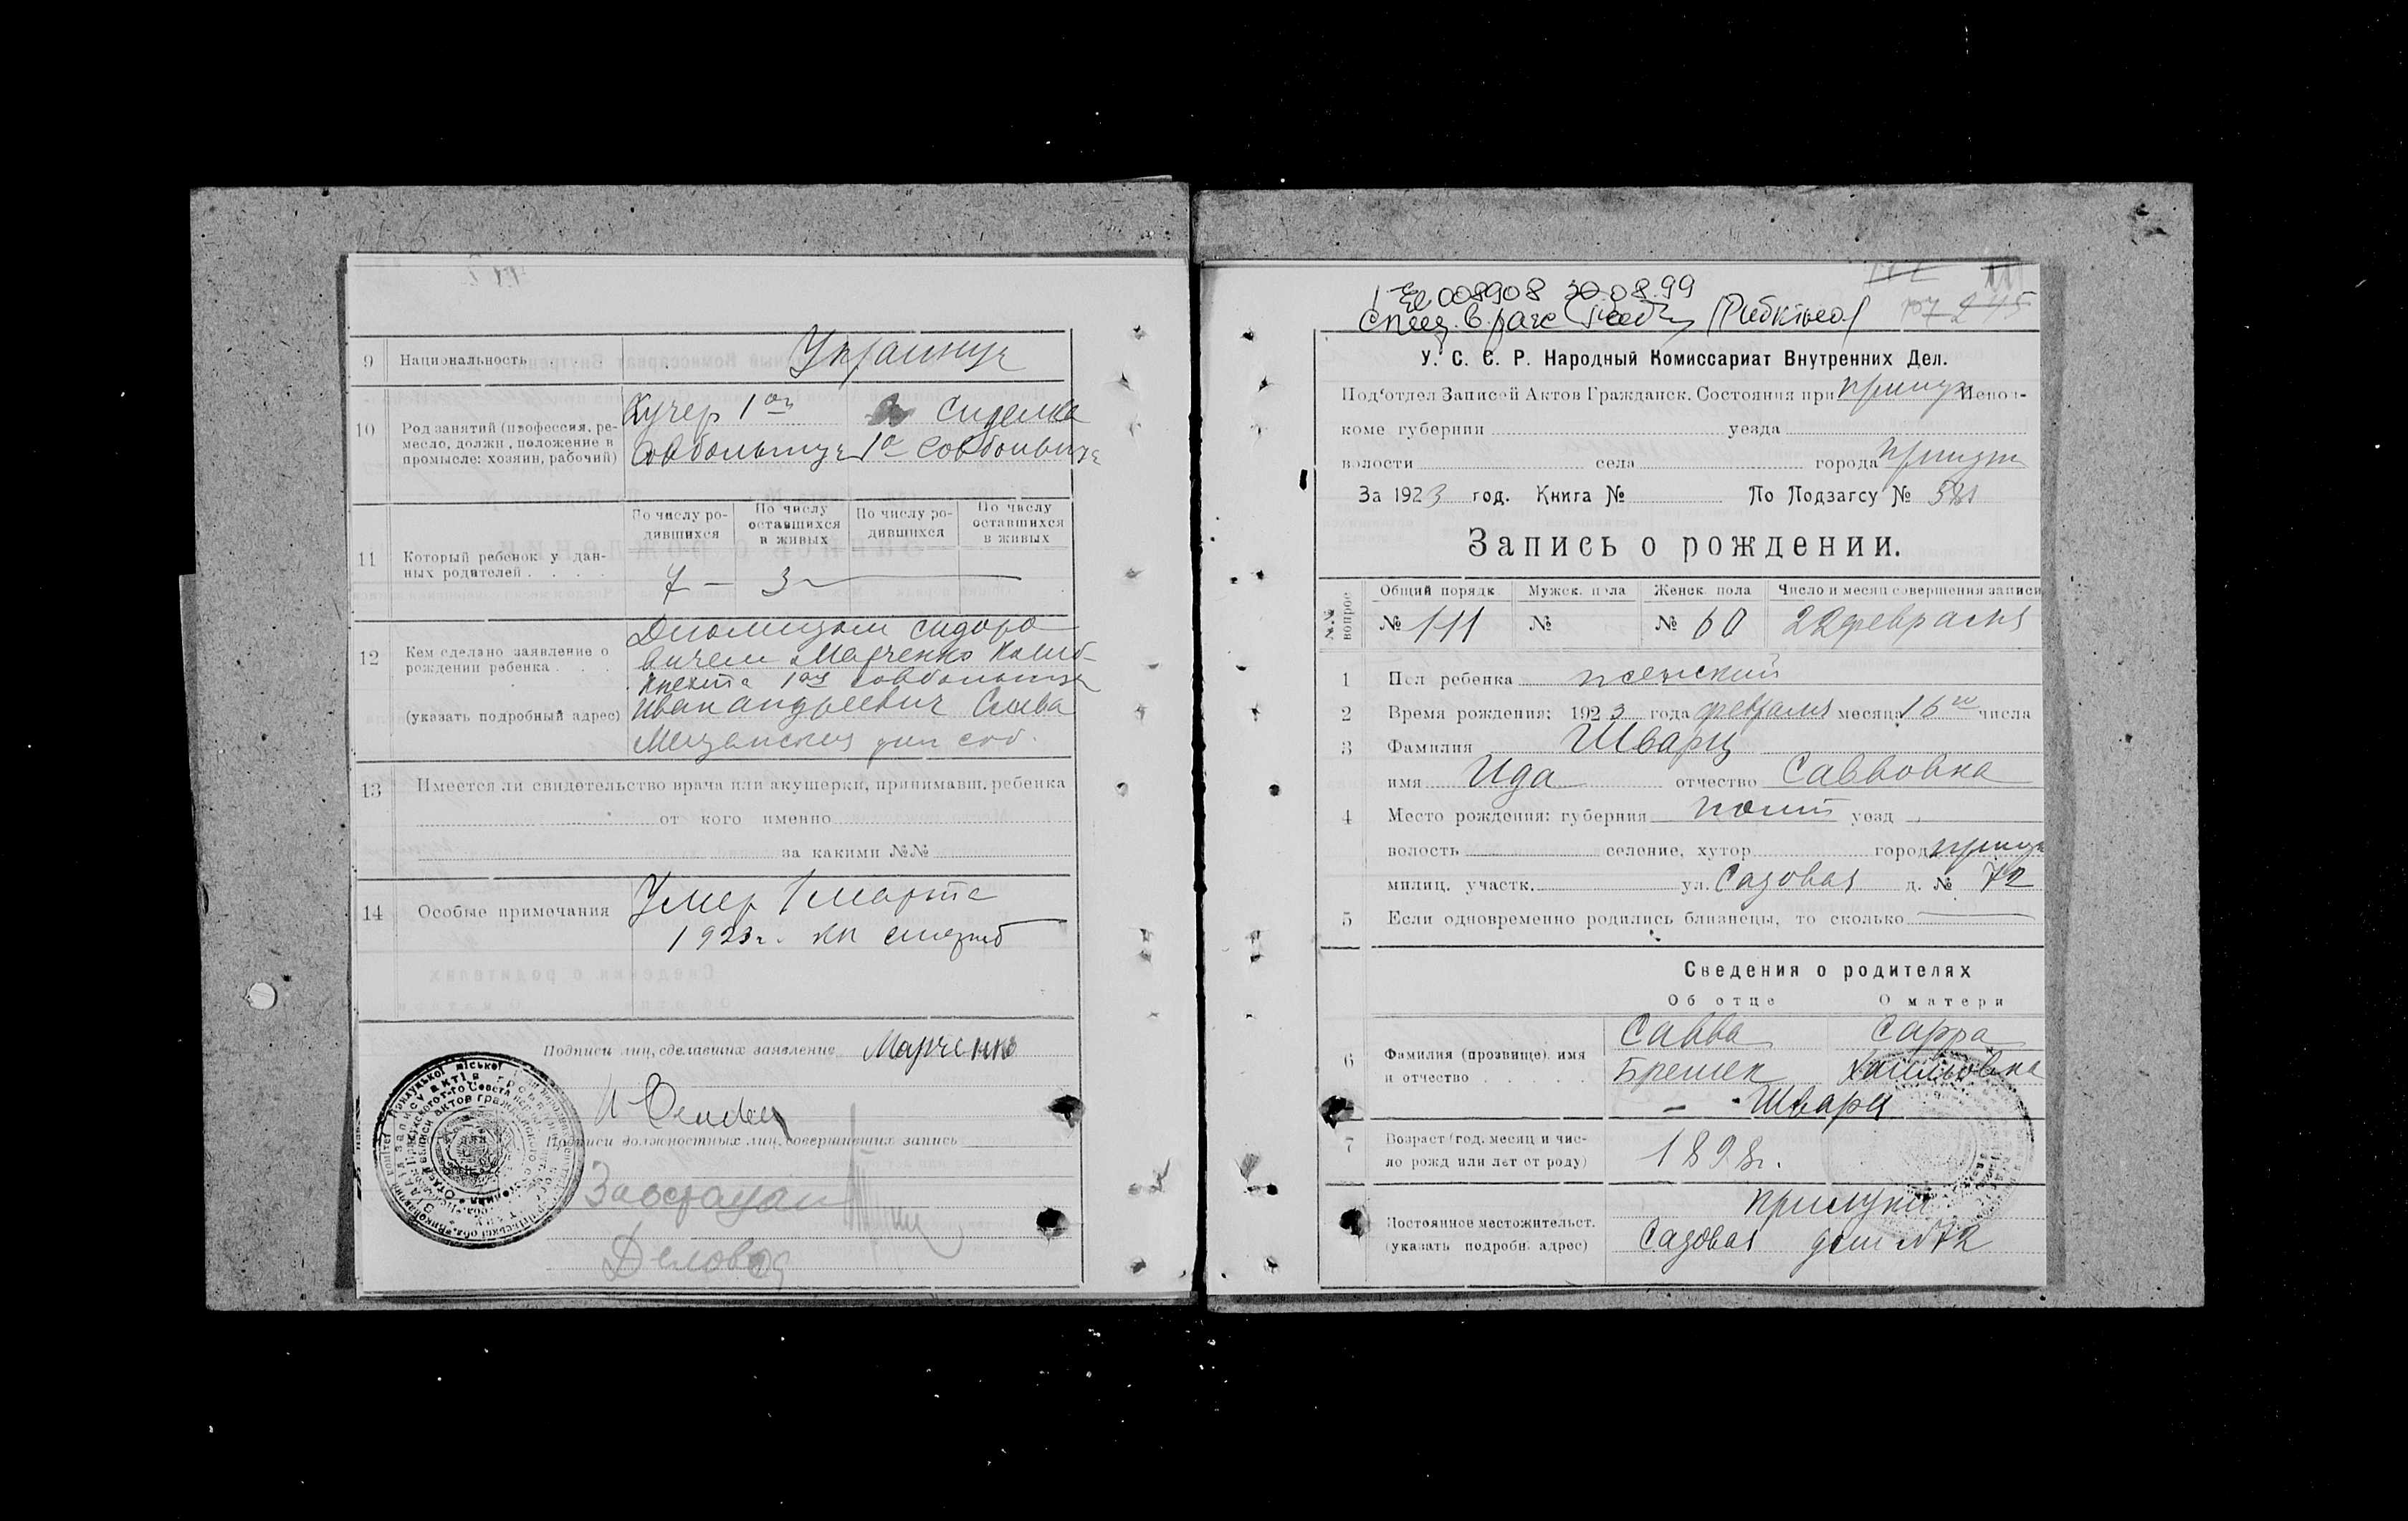 9 Национальность Украинцы
10 Род занятий (профессия, ре-
месло, должн., положение в
промысле: хозяин, рабочий)
Кучер 1ой сиделка
Совбольницы 1а Совбольница
11 Который ребенок у дан-
ных родителей
По числу ро-
дившихся
По числу
оставшихся
в живых
По числу ро-
дившихся
По числу
оставшихся
в живых
7 — 3 —
12 Кем сделано заявление о
рождении ребенка
(указать подробный адрес)
Диомидом Сидоро
вичем Марченко
1ой совбольницы
Иван Андреевич
Мещанская
13 Имеется ли свидетельство врача или акушерки, принимавш. ребенка
от кого именно
за какими №№
14 Особые примечания
Умер 1 марта
1923 г.
Подписи лиц, сделавших заявление Марченко
Подписи должностных лиц, совершивших запись
Деловод
008908 30.08.99
У. С. С. Р. Народный Комиссариат Внутренних Дел.
Под'отдел Записей Актов Гражданск. Состояния при Прилуц Испол-
коме губернии уезда
волости села города
За 1923 год. Книга № По Подзагсу № 581
Запись о рождении.
№№ вопрос
Общий порядк. Мужск. пола Женск. пола Число и месяц совершения записи
№ 111 № № 60 22 февраля
1 Пол ребенка женский
2 Время рождения: 1923 года февраля месяца 16го числа
3 Фамилия Шварц
имя Ида отчество Саввовна
4 Место рождения: губерния Полт уезд
волость селение, хутор город Прилуки
милиц. участк. ул. Садовая д. № 72
5 Если одновременно родились близнецы, то сколько
Сведения о родителях
Об отце О матери
6 Фамилия (прозвище), имя
и отчество
Савва Сарра
Шварц
7 Возраст (год, месяц и чис-
ло рожд. или лет от роду)
1898 г.
Постоянное местожительст.
(указать подробн. адрес)
Прилуки
Садовая дом № 72